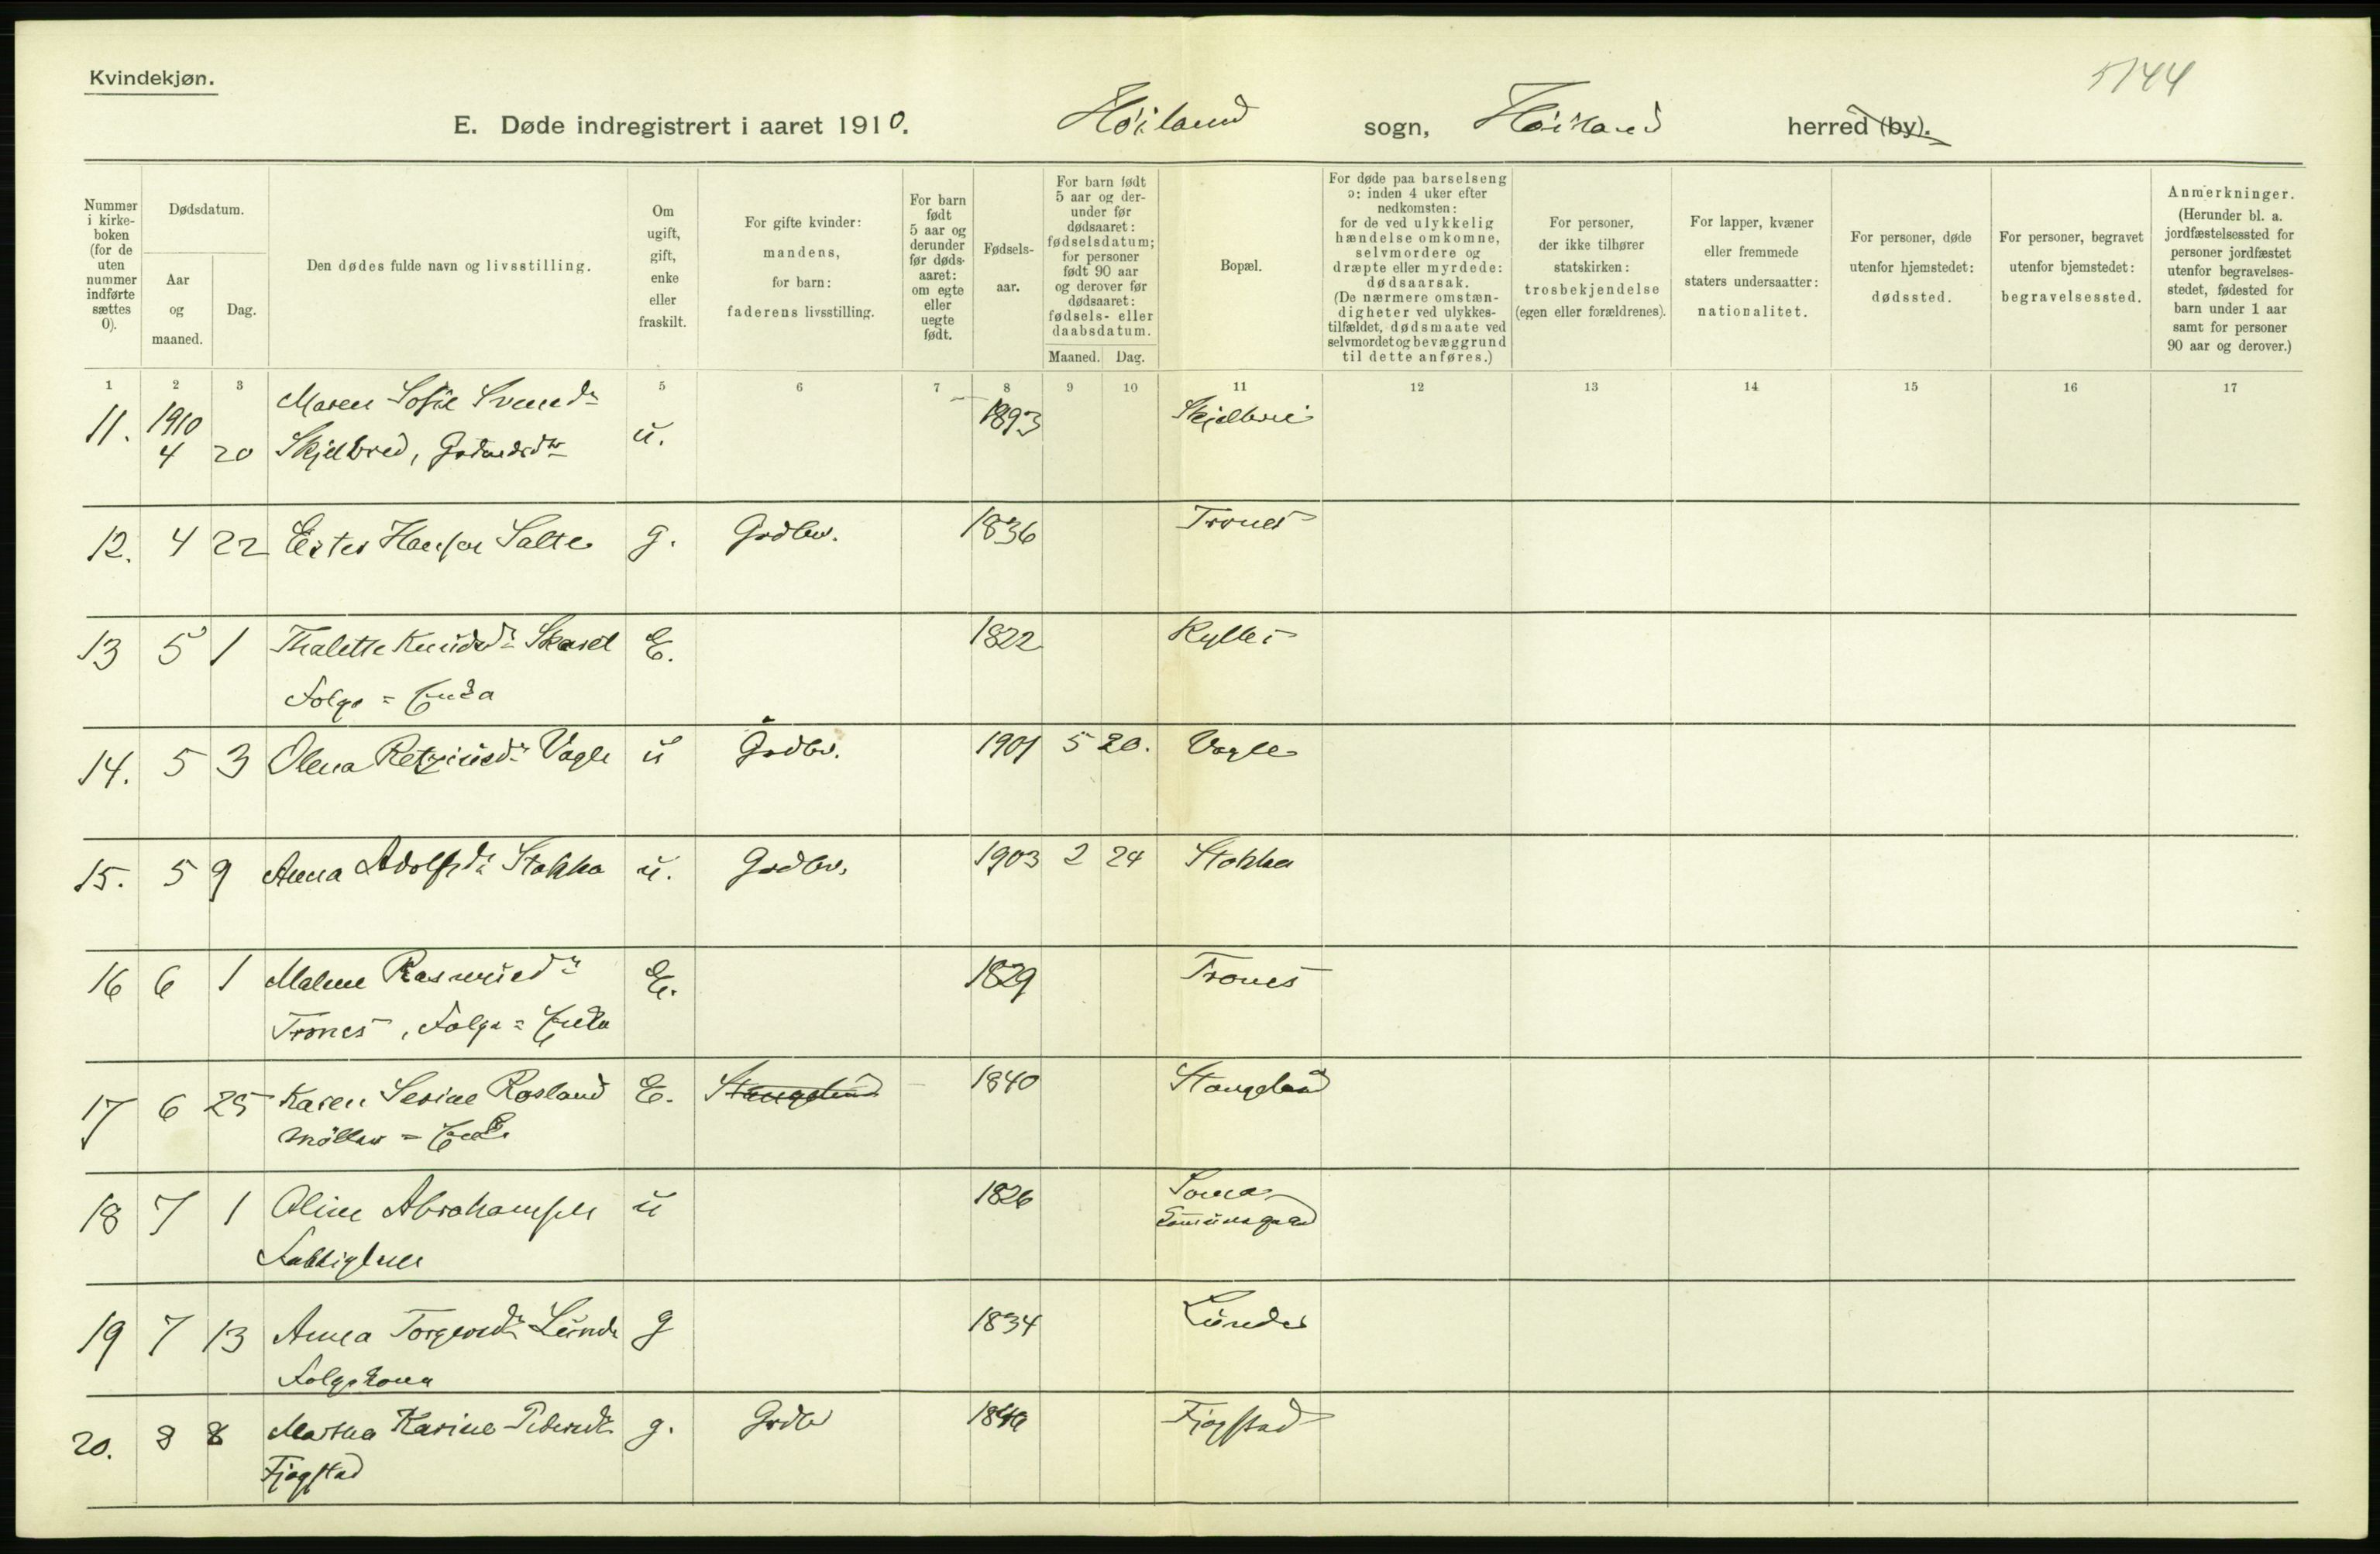 Kvindekjøn.
5144
E. Døde indregistrert i aaret 1910. Höiland sogn, Höiland herred (by).
Nummer i kirkeboken (for de uten nummer indførte sættes 0).
Dødsdatum.
Aar og maaned.
Dag.
Den dødes fulde navn og livsstilling.
Om ugift, gift, enke eller fraskilt.
For gifte kvinder: mandens, for barn: faderens livsstilling.
For barn født 5 aar og derunder før dødsaaret: om egte eller uegte født.
Fødselsaar.
For barn født 5 aar og derunder før dødsaaret: fødselsdatum; for personer født 90 aar og derover før dødsaaret: fødsels- eller daabsdatum.
Maaned. Dag.
Bopæl.
For døde paa barselseng ɔ: inden 4 uker efter nedkomsten: for de ved ulykkelig hændelse omkomne, selvmordere og dræpte eller myrdede: dødsaarsak. (De nærmere omstændigheter ved ulykkestilfældet, dødsmaate ved selvmordet og bevæggrund til dette anføres.)
For personer, der ikke tilhører statskirken: trosbekjendelse (egen eller forældrenes).
For lapper, kvæner eller fremmede staters undersaatter: nationalitet.
For personer, døde utenfor hjemstedet: dødssted.
For personer, begravet utenfor bjemstedet: begravelsessted.
Anmerkninger. (Herunder bl. a. jordfæstelsessted for personer jordfæstet utenfor begravelsesstedet, fødested for barn under 1 aar samt for personer 90 aar og derover.)
1 2 3 5 6 7 8 9 10 11 12 13 14 15 16 17
11. 1910 4 20 Maren Sofie Svendsdr Skjelbred, u. 1893 Skjelbrei
12. 4 22 Ester Hansen Salte g. Grdbr. 1836 Trones
13 5 1 Thalette Knudsdr Skasel E. 1822 Kyllei
Folge = Enka
14. 5 3 Olena Retziusdr Vagle u Grdbr. 1901 5 20. Vagle
15. 5 9 Anna Adolfsdr Stokka u. Grdbr. 1903 2 24 Stokka
16 6 1 Malene Rasmusdr E. 1829 Trones
Trones, Folge = Enka
17 6 25 Karen Serine Rosland E. Stangeland 1840 Stangeland
Möller = Enke
18 7 1 Oline Abrahamsen u 1826 Soma
Fattiglem
19 7 13 Anna Torgersdr Lunde g 1834 Lunde
Folgekona
20. 8 8 Martha Karine Pedersdr g. Grdb Fjogstad
Fjogstad